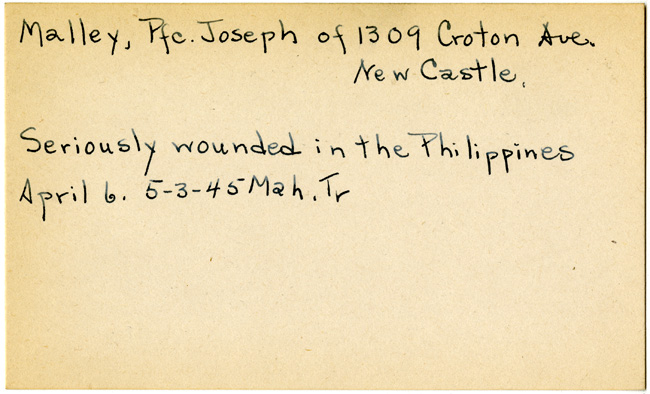 Malley, Pfc. Joseph of 1309 Croton Ave.
New Castle.
Seriously wounded in the Philippines
April 6. 5-3-45 Mah. Tr